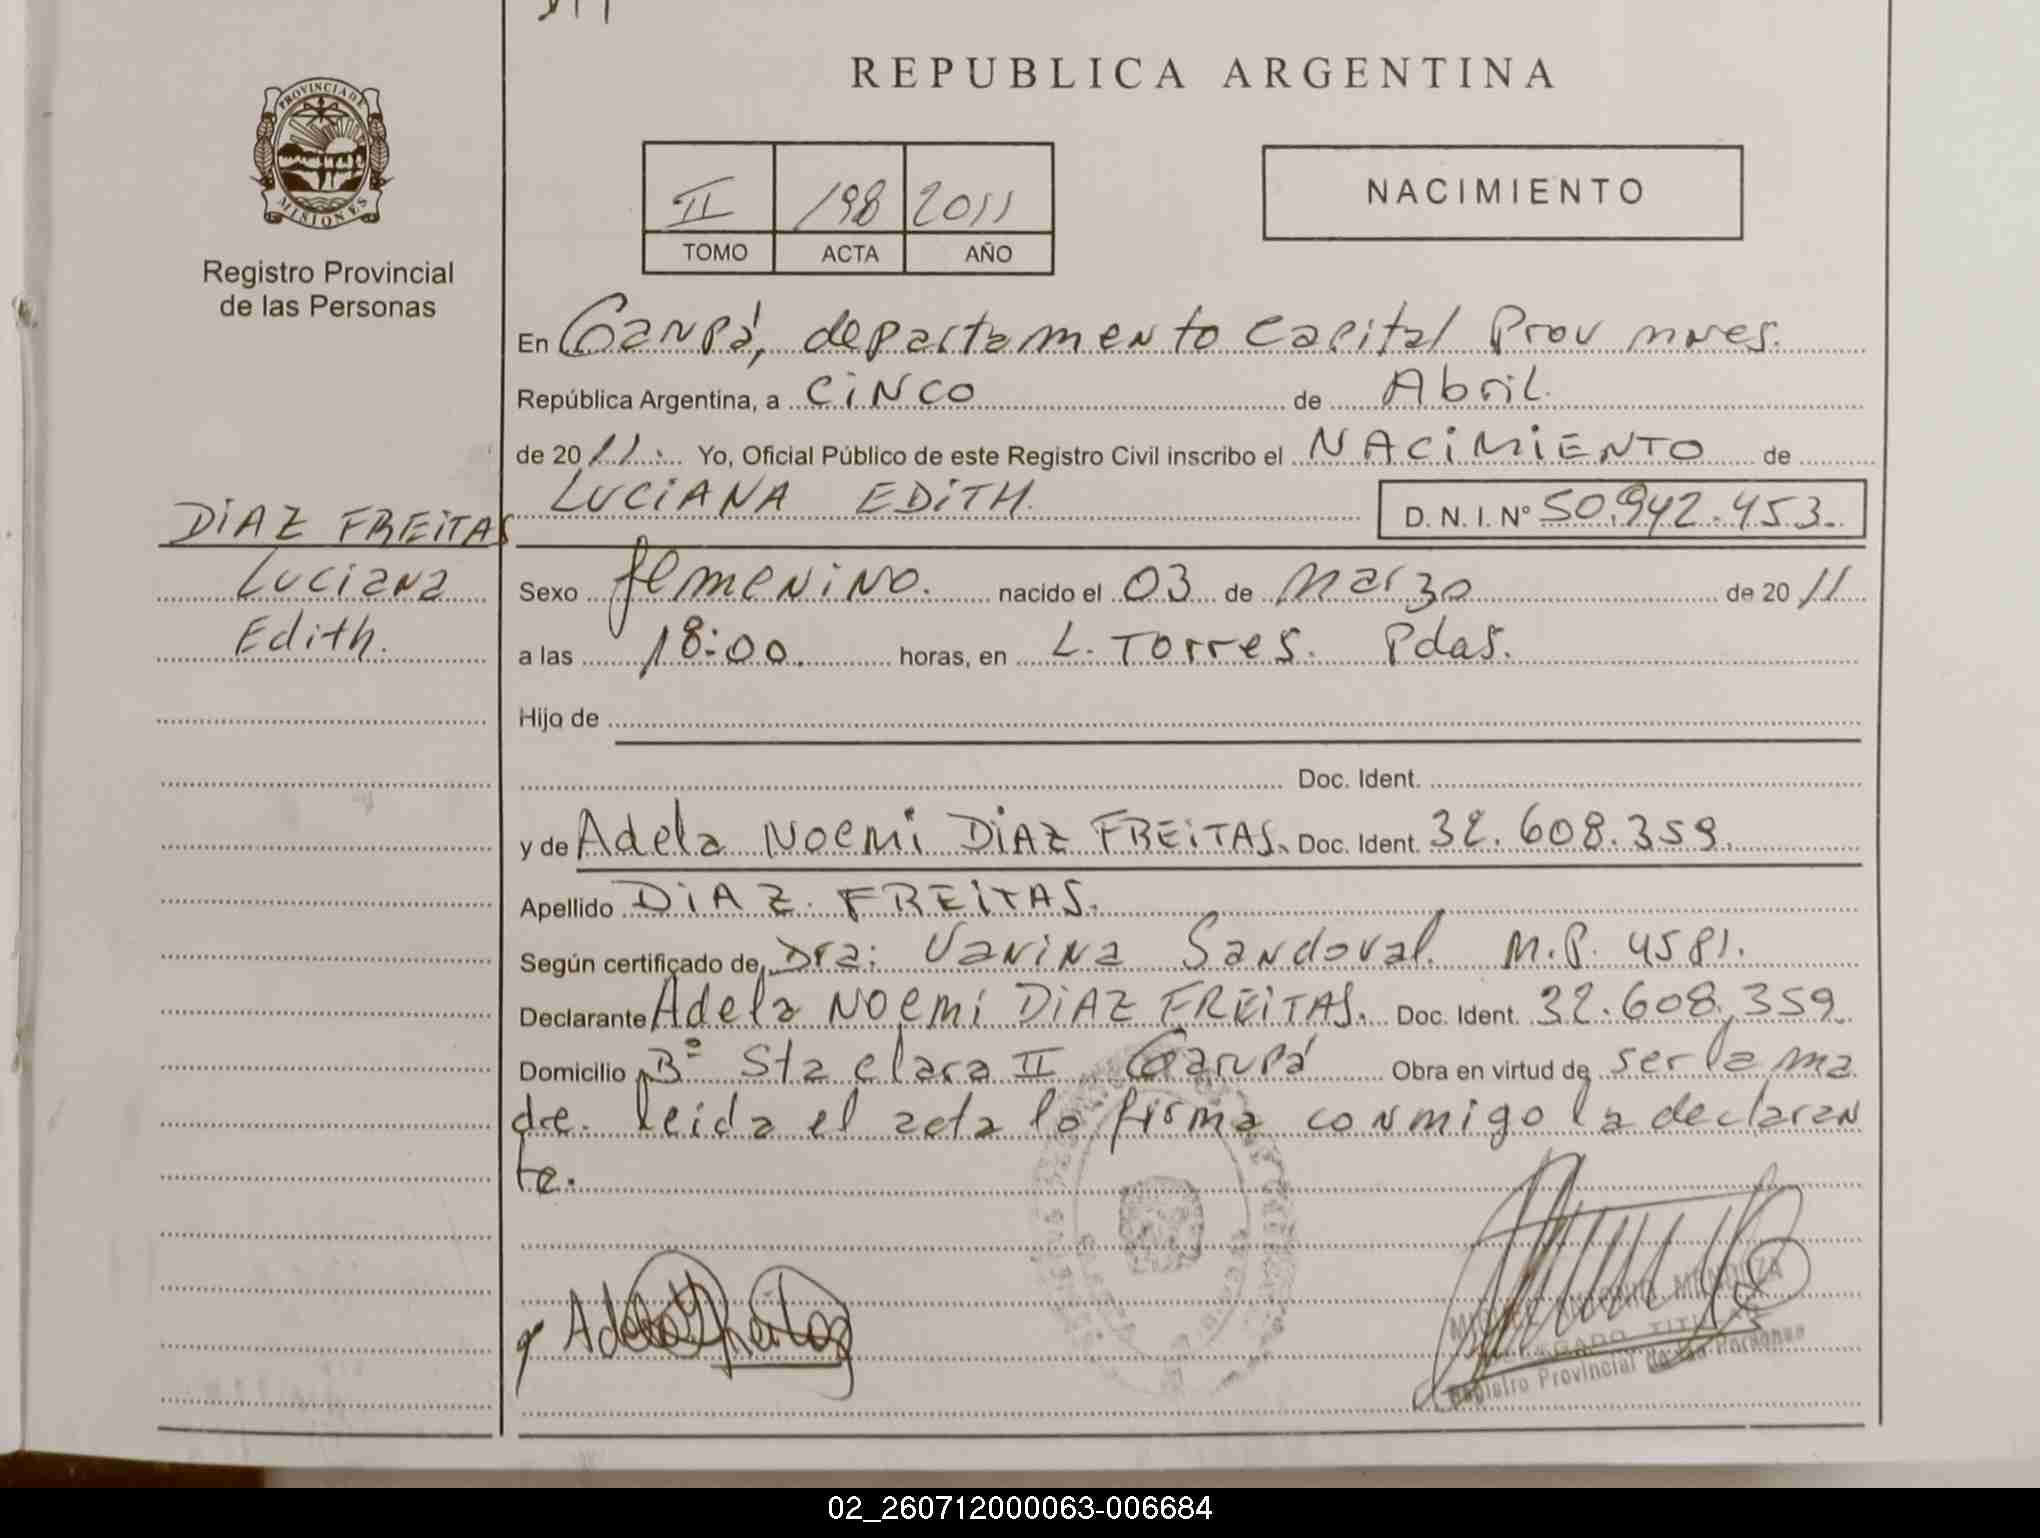 REPUBLICA ARGENTINA
PROVINCIA DE
MISIONES
Registro Provincial
de las Personas
II 198 2011
TOMO ACTA AÑO
NACIMIENTO
En Garupá, departamento Capital Prov mnes.
República Argentina, a cinco de Abril.
de 2011. Yo, Oficial Público de este Registro Civil inscribo el NACIMIENTO de
LUCIANA EDITH. D. N. I. Nº 50.942.453.
DIAZ FREITAS
Luciana
Edith.
Sexo femenino. nacido el 03 de Marzo de 2011
a las 18:00. horas, en L. Torres. Pdas.
Hijo de
Doc. Ident.
y de Adela Noemi DIAZ FREITAS. Doc. Ident. 32.608.359.
Apellido DIAZ. FREITAS.
Según certificado de Dra: Vanina Sandoval. M.P. 4581.
Declarante Adela Noemi DIAZ FREITAS. Doc. Ident. 32.608.359
Domicilio Bº Sta clara II Garupá Obra en virtud de ser la ma
dre. leida el acta lo firma conmigo la declaran
te.
Adela Freitas
MIGUEL ANTONIO MENDOZA
DELEGADO TITULAR
Registro Provincial de las Personas
02_260712000063-006684